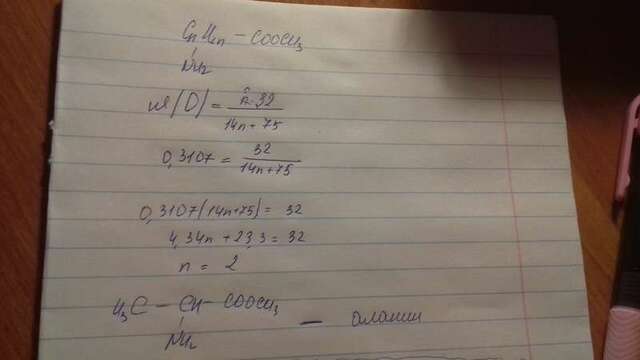 CnH2n - COOCH3
NH2
ω(O) = 2·32 / 14n + 75
0,3107 = 32 / 14n+75
0,3107(14n+75) = 32
4,34n + 23,3 = 32
n = 2
H3C - CH - COOCH3 - аланин
NH2